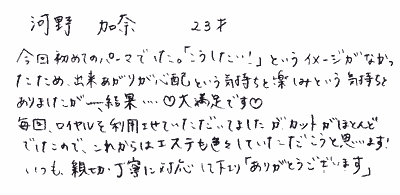 河野 加奈 23才
今回初めてのパーマでした。「こうしたい!」というイメージがなかっ
たため、出来あがりが心配という気持ちと楽しみという気持ちと
ありましたが…結果…♡大満足です♡
毎回、ロイヤルを利用させていただいてましたがカットがほとんど
でしたので、これからはエステも色々していただこうと思います!
いつも、親切・丁寧に対応して下さり「ありがとうございます」